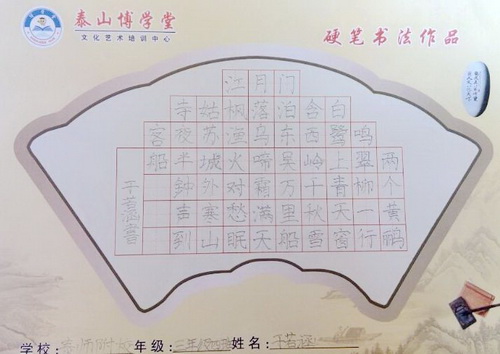 泰山博学堂
文化艺术培训中心
硬笔书法作品
两个黄鹂
鸣翠柳一行
白鹭上青天窗
含西岭千秋雪
门泊东吴万里船
月落乌啼霜满天
江枫渔火对愁眠
姑苏城外寒山
寺夜半钟声到
客船
学校： 年级：三年级 姓名：